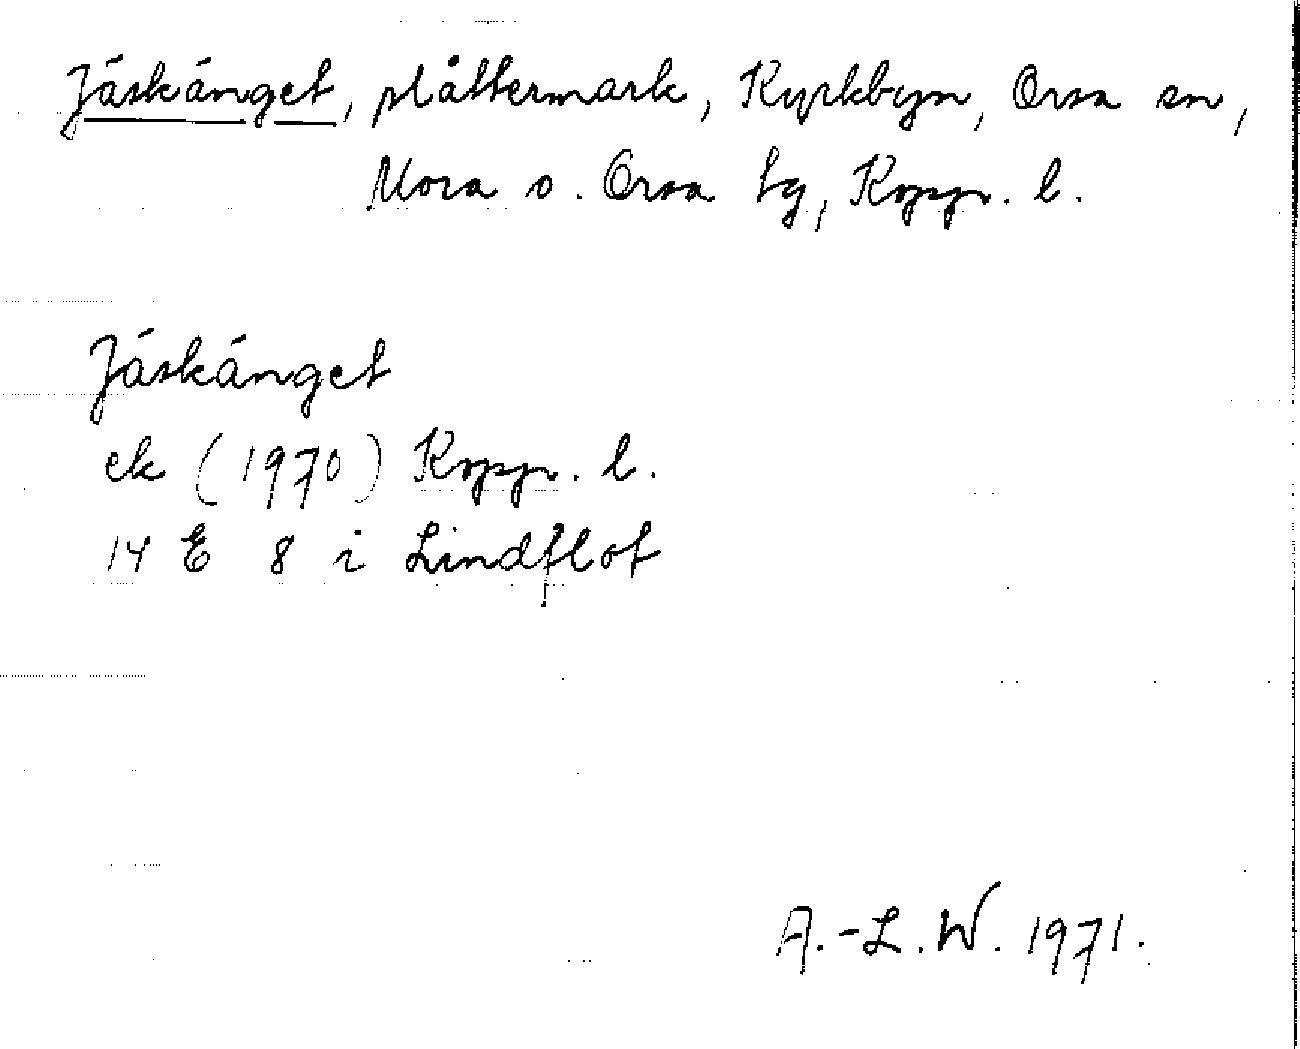 Jäskänget, plåttermark, Kyrkbyn, Orsa sn,
Mora o. Orsa tg, Kopp. l.
Jäskänget
ek (1970) Kopp. l.
14 E 8 i Lindflot
A.-L. W. 1971.